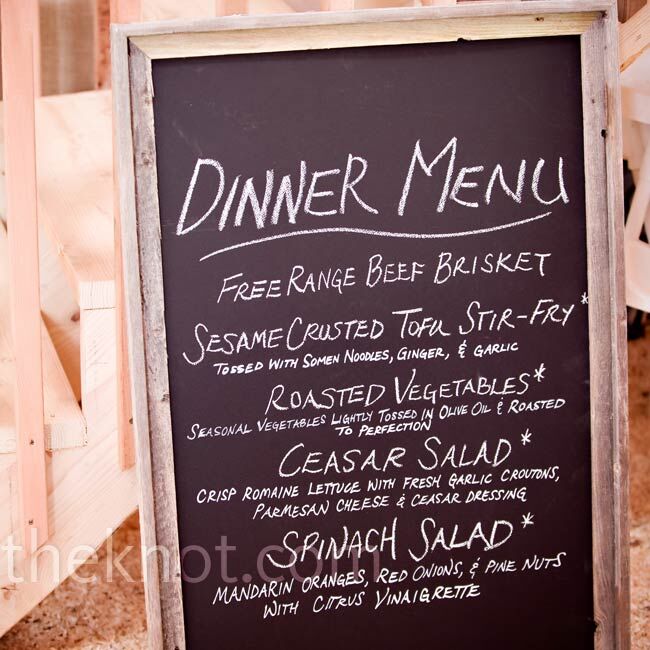 DINNER MENU
FREE RANGE BEEF BRISKET
SESAME CRUSTED TOFU STIR-FRY*
TOSSED WITH SOMEN NOODLES, GINGER, & GARLIC
ROASTED VEGETABLES*
SEASONAL VEGETABLES LIGHTLY TOSSED IN OLIVE OIL & ROASTED
TO PERFECTION
CEASAR SALAD*
CRISP ROMAINE LETTUCE WITH FRESH GARLIC CROUTONS,
PARMESAN CHEESE & CEASAR DRESSING
SPINACH SALAD*
theknot.com
MANDARIN ORANGES, RED ONIONS, & PINE NUTS
WITH CITRUS VINAIGRETTE